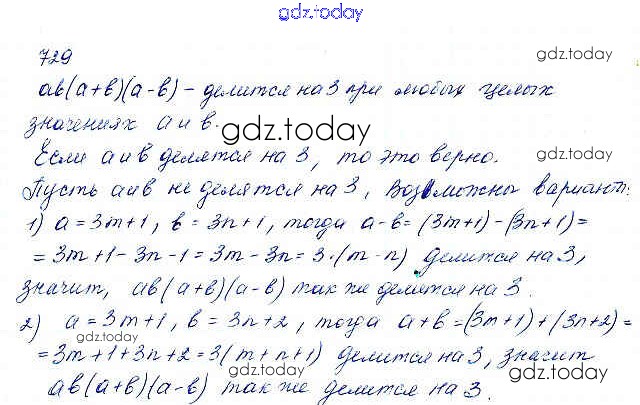 gdz.today
729
gdz.today
ab(a+b)(a-b) - делится на 3 при любых целых
значениях a и b.
gdz.today
Если a и b делятся на 3, то это верно.
gdz.today
Пусть a и b не делятся на 3, возможны вариант:
1) a = 3m+1, b = 3n+1, тогда a-b = (3m+1)-(3n+1) =
= 3m+1-3n-1 = 3m-3n = 3·(m-n) делится на 3,
gdz.today
значит, ab(a+b)(a-b) так же делится на 3.
2) a = 3m+1, b = 3n+2, тогда a+b = (3m+1)+(3n+2) =
gdz.today
= 3m+1+3n+2 = 3(m+n+1) делится на 3, значит
gdz.today
gdz.today
ab(a+b)(a-b) так же делится на 3.